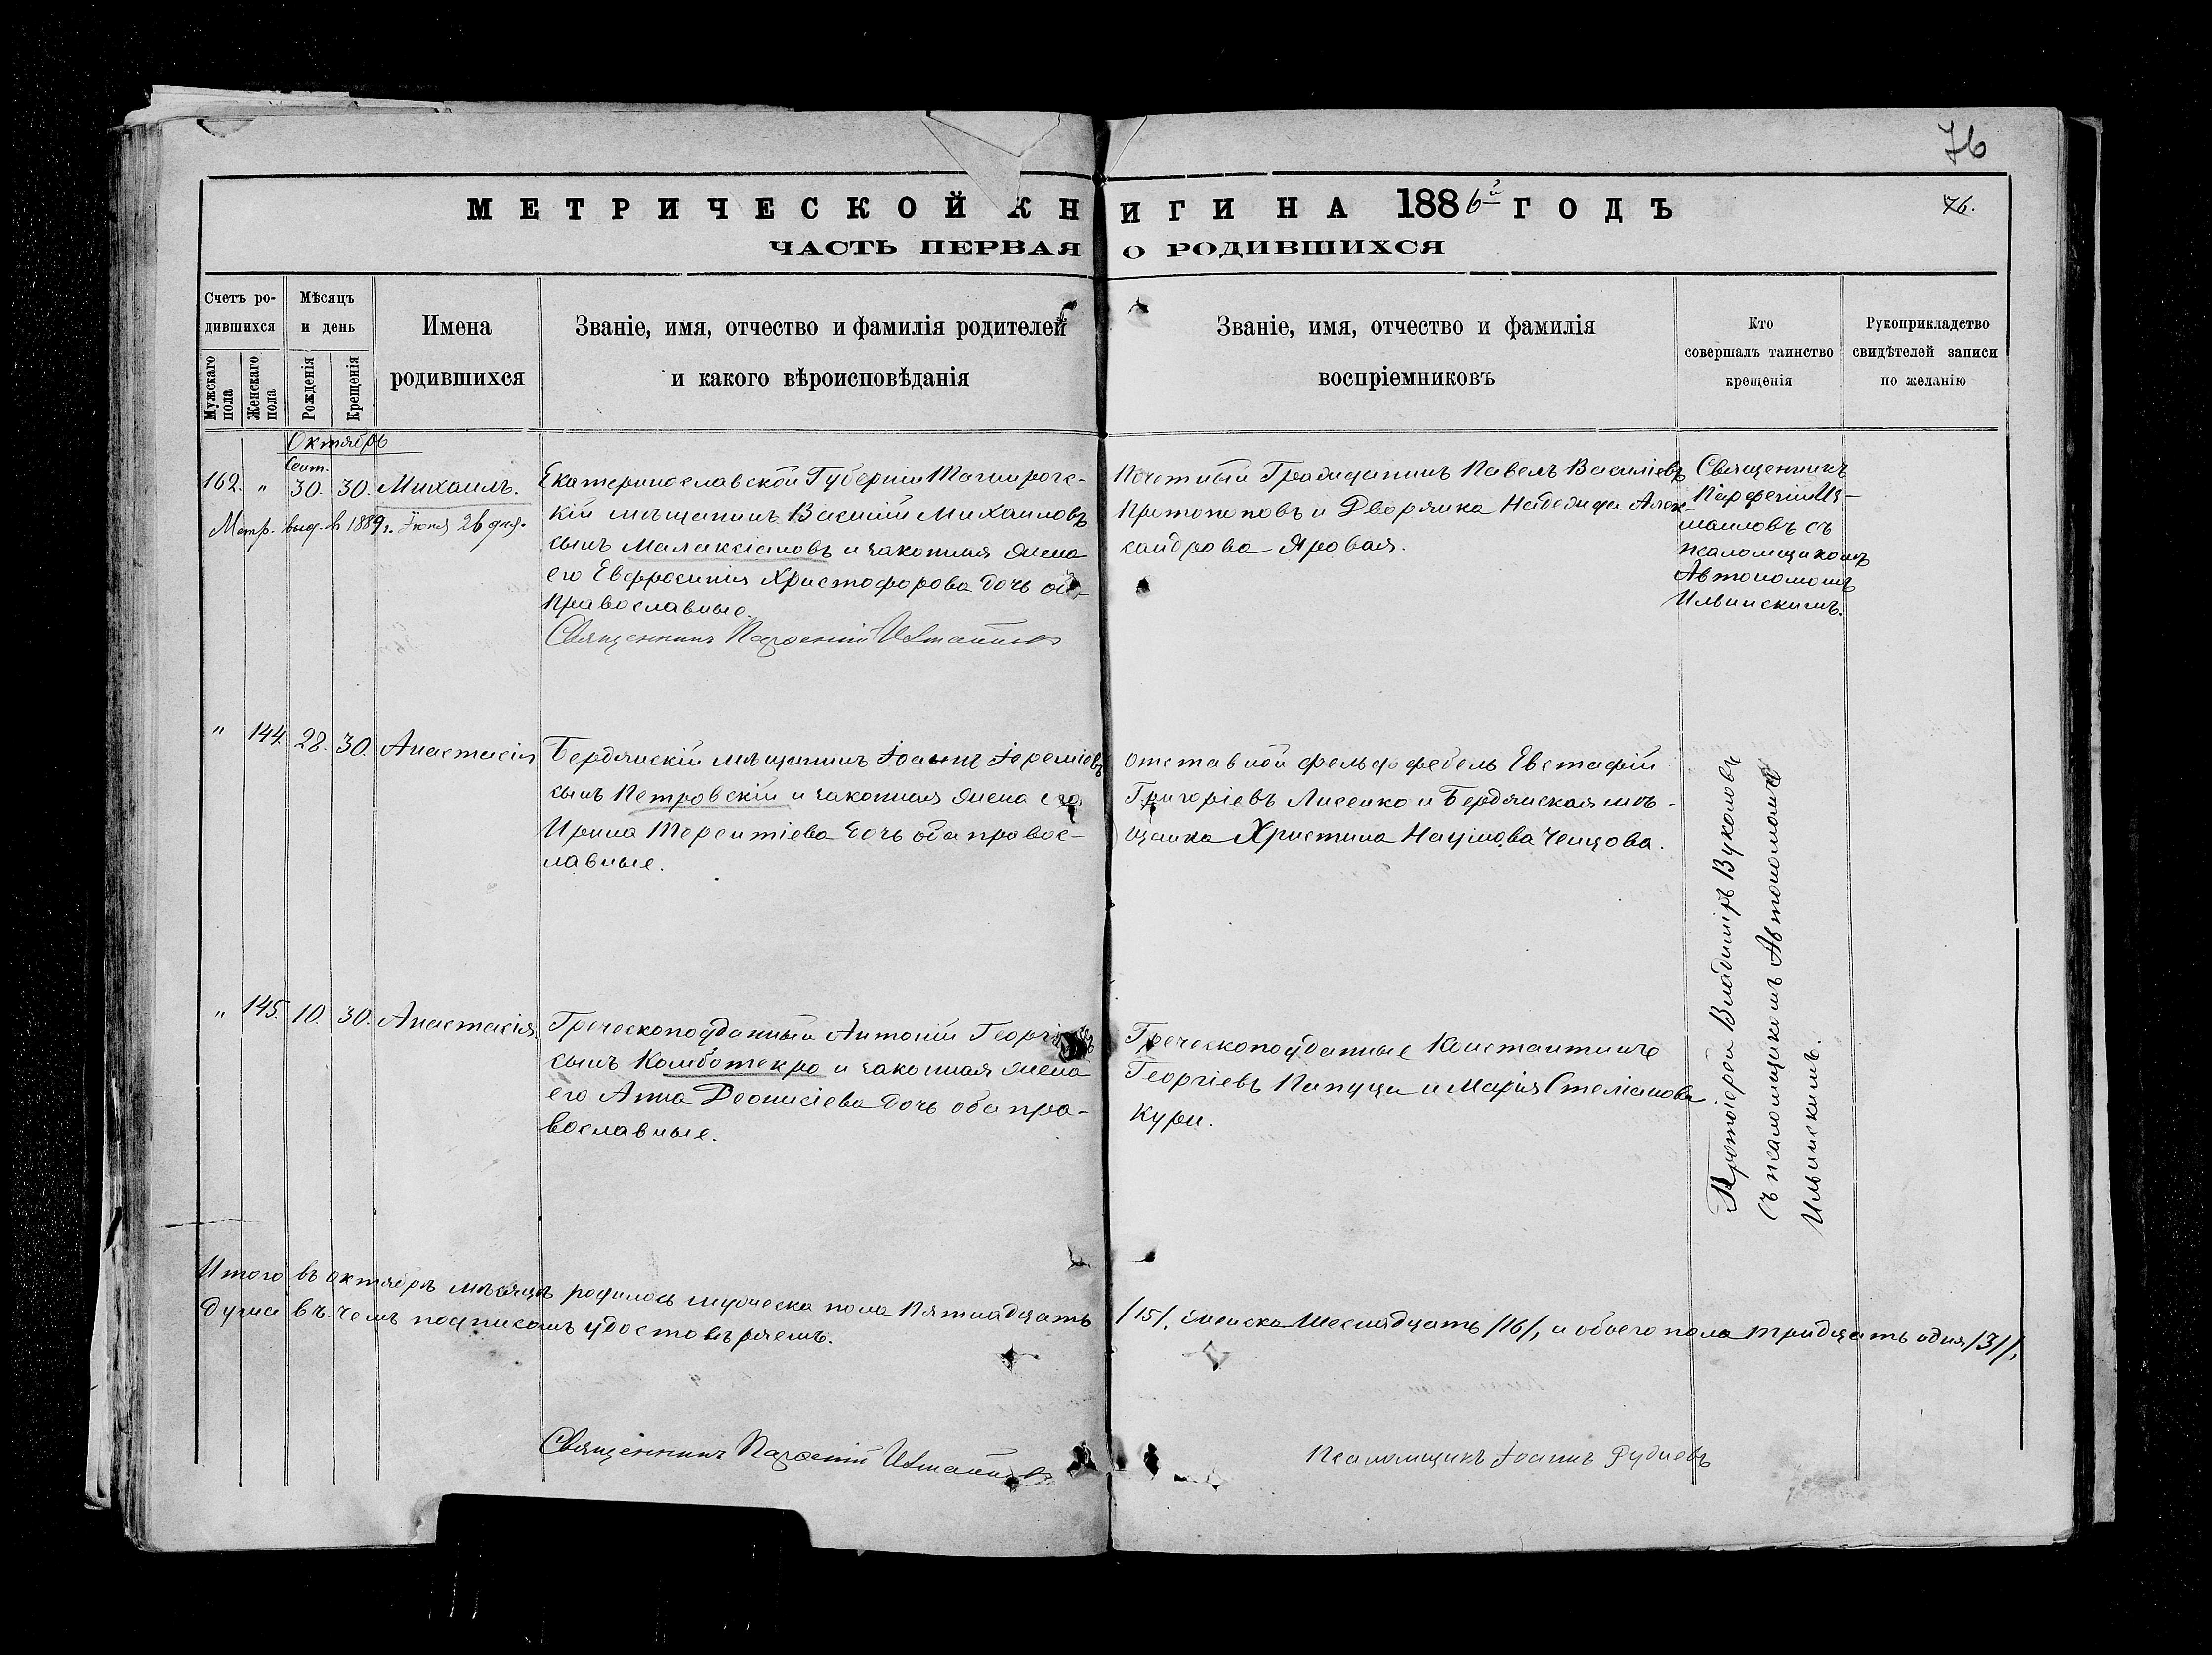 76
МЕТРИЧЕСКОЙ КНИГИ НА 1886й ГОДЪ
76.
ЧАСТЬ ПЕРВАЯ О РОДИВШИХСЯ
Счетъ ро-
дившихся
Мужскаго пола
Женскаго пола
Мѣсяцъ
и день
Рожденія
Крещенія
Имена
родившихся
Званіе, имя, отчество и фамилія родителей
и какого вѣроисповѣданія
Званіе, имя, отчество и фамилія
воспріемниковъ
Кто
совершалъ таинство
крещенія
Рукоприкладство
свидѣтелей записи
по желанію
Октябрь
Сент.
162. " 30. 30. Михаилъ.
Метр. выд. въ 1889 г. Іюня 26 дня.
Екатеринославской Губерніи Таганрогс-
кій мѣщанинъ Василій Михаиловъ
сынъ Малаксіановъ и законная жена
его Евфросинія Христофорова дочь оба
православные.
Священникъ Парѳеній Измаиловъ
Почетный Гражданинъ Павелъ Василіевъ
Протопоповъ и Дворянка Надежда Алек-
сандрова Яровая.
Священникъ
Парфеній Из-
маиловъ съ
псаломщикомъ
Автономомъ
Ильинскимъ.
" 144. 28. 30. Анастасія
Бердянскій мѣщанинъ Іоаннъ Іереміевъ
сынъ Петровскій и законная жена его
Ирина Терентіева дочь оба правос-
лавные.
Отставной фельдфебель Евстафій
Григоріевъ Лисенко и Бердянская мѣ-
щанка Христина Наумова Ченцова.
Протоіерей Владиміръ Вуколовъ
съ псаломщикомъ Автономомъ
Ильинскимъ.
" 145. 10. 30. Анастасія.
Греческоподданный Антоній Георгіевъ
сынъ Комботекро и законная жена
его Анна Діонисіева дочь оба пра-
вославные.
Греческоподданные Константинъ
Георгіевъ Папуци и Марія Стеліанова
Кури.
Итого въ октябрѣ мѣсяцѣ родилось мужеска пола Пятнадцать /15/, женска Шеснадцать /16/, и обоего пола тридцать одна /31/,
душа въ чемъ подписомъ удостовѣряемъ.
Священникъ Парѳеній Измаиловъ
Псаломщикъ Іоаннъ Рудневъ